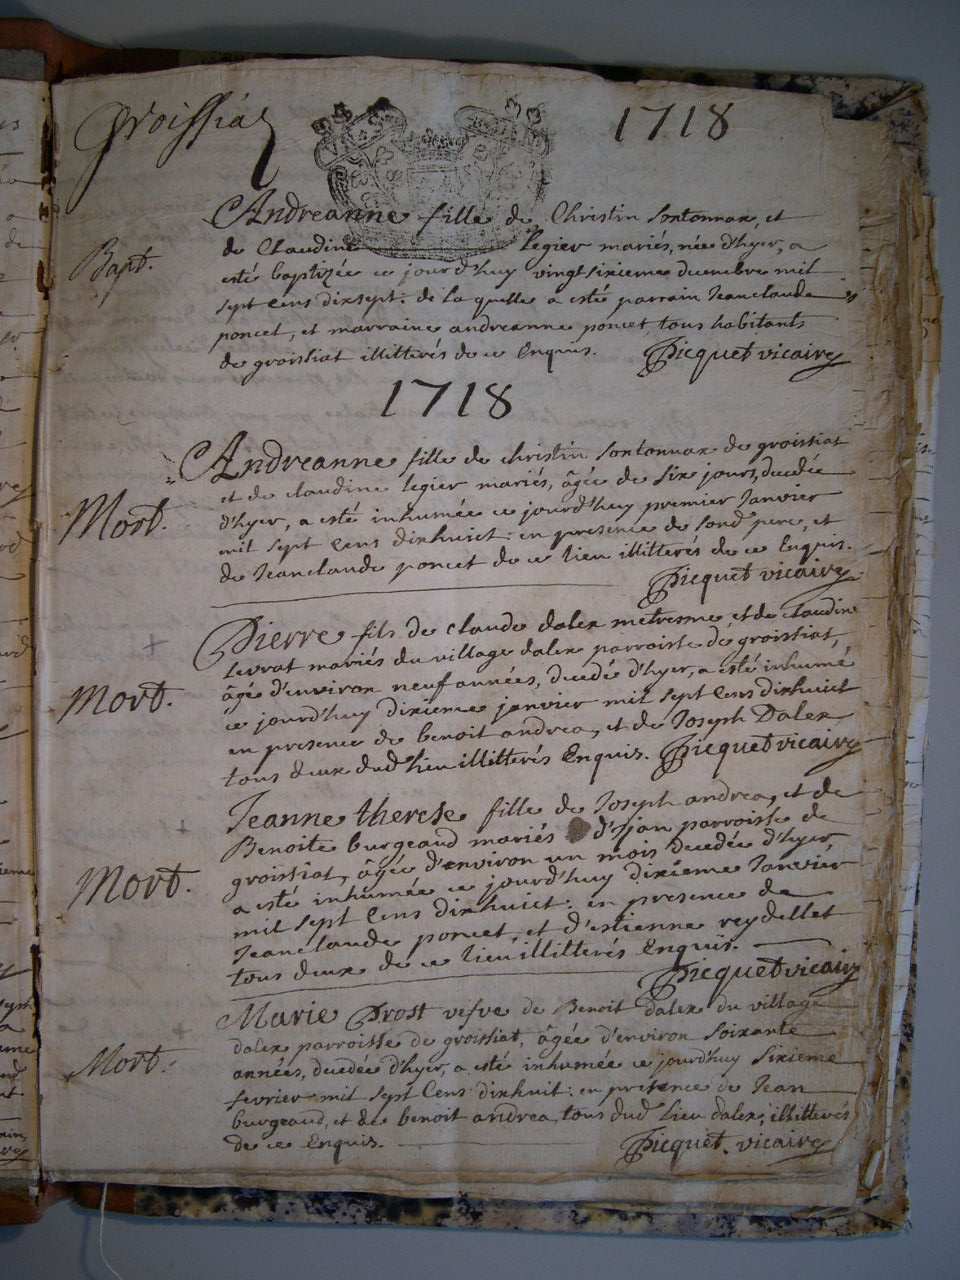 Groissia 1718
Bapt.
Andreanne fille de Christin Sontonnax, et
de Claudine Legier mariés, née d'hyer, a
esté baptizée ce jourd'huy vingt sixieme decembre mil
sept Cens dix sept: de la quelle a esté parrain Jean claude
poncet, et marraine andreanne poncet tous habitants
de groissiat illitterés de ce Enquis. Picquet vicaire
1718
Mort.
Andreanne fille de christin sontonnax de groissiat
et de claudine legier mariés, âgée de six jours, decedée
d'hyer, a esté inhumée ce jourd'huy premier Janvier
mil sept Cens dixhuict: en presence de sond. pere, et
de Jean claude poncet de ce lieu illitterés de ce Enquis.
Picquet vicaire
Mort.
Pierre fils de claude dalex metresme, et de claudine
levrat mariés du village dalex parroisse de groissiat,
âgé d'environ neuf années, decedé d'hyer, a esté inhumé
ce jourd'huy dixieme janvier mil sept Cens dixhuict
en presence de benoit andrea, et de Joseph Dalex
tous deux dud. lieu illitterés Enquis. Picquet vicaire
Mort.
Jeanne therese fille de Joseph andrea, et de
Benoite burgeaud mariés d'ijan parroisse de
groissiat, âgée d'environ un mois decedée d'hyer,
a esté inhumée ce jourd'huy dixieme Janvier
mil sept Cens dixhuict: en presence de
Jean claude poncet, et d'estienne reydellet
tous deux de ce lieu illitterés Enquis.
Picquet vicaire
Mort.
Marie Prost vefve de Benoit dalex du village
dalex parroisse de groissiat, âgée d'environ soixante
années, decedée d'hyer, a esté inhumée ce jourd'huy sixieme
fevrier mil sept Cens dixhuit: en presence de Jean
burgeaud, et de benoit andrea tous dud. lieu dalex, illitterés
de ce Enquis. Picquet vicaire